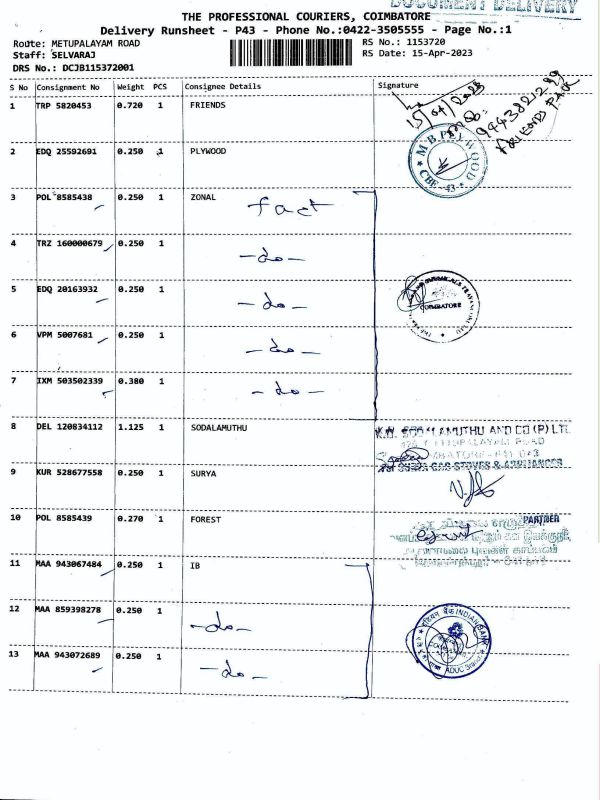 DOCUMENT DELIVERY
THE PROFESSIONAL COURIERS, COIMBATORE
Delivery Runsheet - P43 - Phone No.:0422-3505555 - Page No.:1
Route: METUPALAYAM ROAD RS No.: 1153720
Staff: SELVARAJ RS Date: 15-Apr-2023
DRS No.: DCJB115372001
S No Consignment No Weight PCS Consignee Details Signature
1 TRP 5820453 0.720 1 FRIENDS
15/04/2023
9443821299
FRIENDS PACK
2 EDQ 25592691 0.250 1 PLYWOOD
M.B.PLYWOOD
CBE -43
3 POL 8585438 0.250 1 ZONAL
fact
4 TRZ 160000679 0.250 1
-do-
5 EDQ 20163932 0.250 1
-do-
COIMBATORE
6 VPM 5007681 0.250 1
-do-
7 IXM 503502339 0.380 1
-do-
8 DEL 120834112 1.125 1 SODALAMUTHU
LAMUTHU AND CO (P) LTD
9 KUR 528677558 0.250 1 SURYA
GAS STOVES & APPLIANCES
PARTNER
10 POL 8585439 0.270 1 FOREST
11 MAA 943067484 0.250 1 IB
12 MAA 859398278 0.250 1
-do-
INDIAN BANK
13 MAA 943072689 0.250 1
-do-